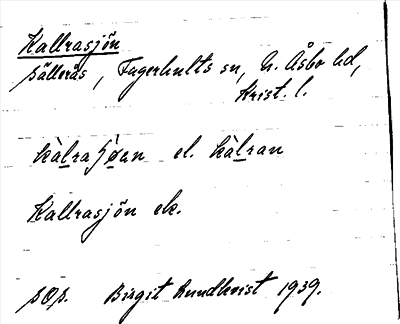 Kallrasjön
sälleräs, Fagerhults sn, N. Åsbo hd,
Krist. l.
kàlra ʃøan el. kàlran
Kallrasjön ek.
sOs. Birgit Rundkvist 1939.